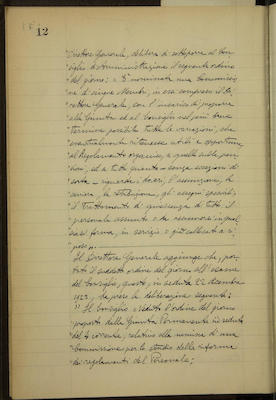 12
Direttore Generale, delibera di sottoporre al Con-
siglio d'Amministrazione il seguente ordine
del giorno: "È nominata una Commissio-
ne di cinque Membri, in essa compreso il Di-
rettore Generale, con l'incarico di proporre
alla Giunta ed al Consiglio nel più breve
termine possibile tutte le variazioni, che
eventualmente ritenesse utili e opportune
al Regolamento organico, a quello delle pen-
sioni, ed a tutto quanto - senza eccezioni di
sorta - riguarda i doveri, l'assunzione, la
carriera, lo stipendio, gli assegni accessori,
il trattamento di quiescenza di tutto il
personale assunto o da assumersi in qual-
siasi forma, in servizio o già collocato a ri-
poso".
Il Direttore Generale aggiunge che, por-
tato il suddetto ordine del giorno all'esame
del Consiglio, questo, in seduta 22 dicembre
1922, ha preso la deliberazione seguente:
"Il Consiglio, veduto l'ordine del giorno
proposto dalla Giunta Permanente in seduta
del 4 corrente, relativo alla nomina di una
Commissione per lo studio della riforma
dei regolamenti del Personale;